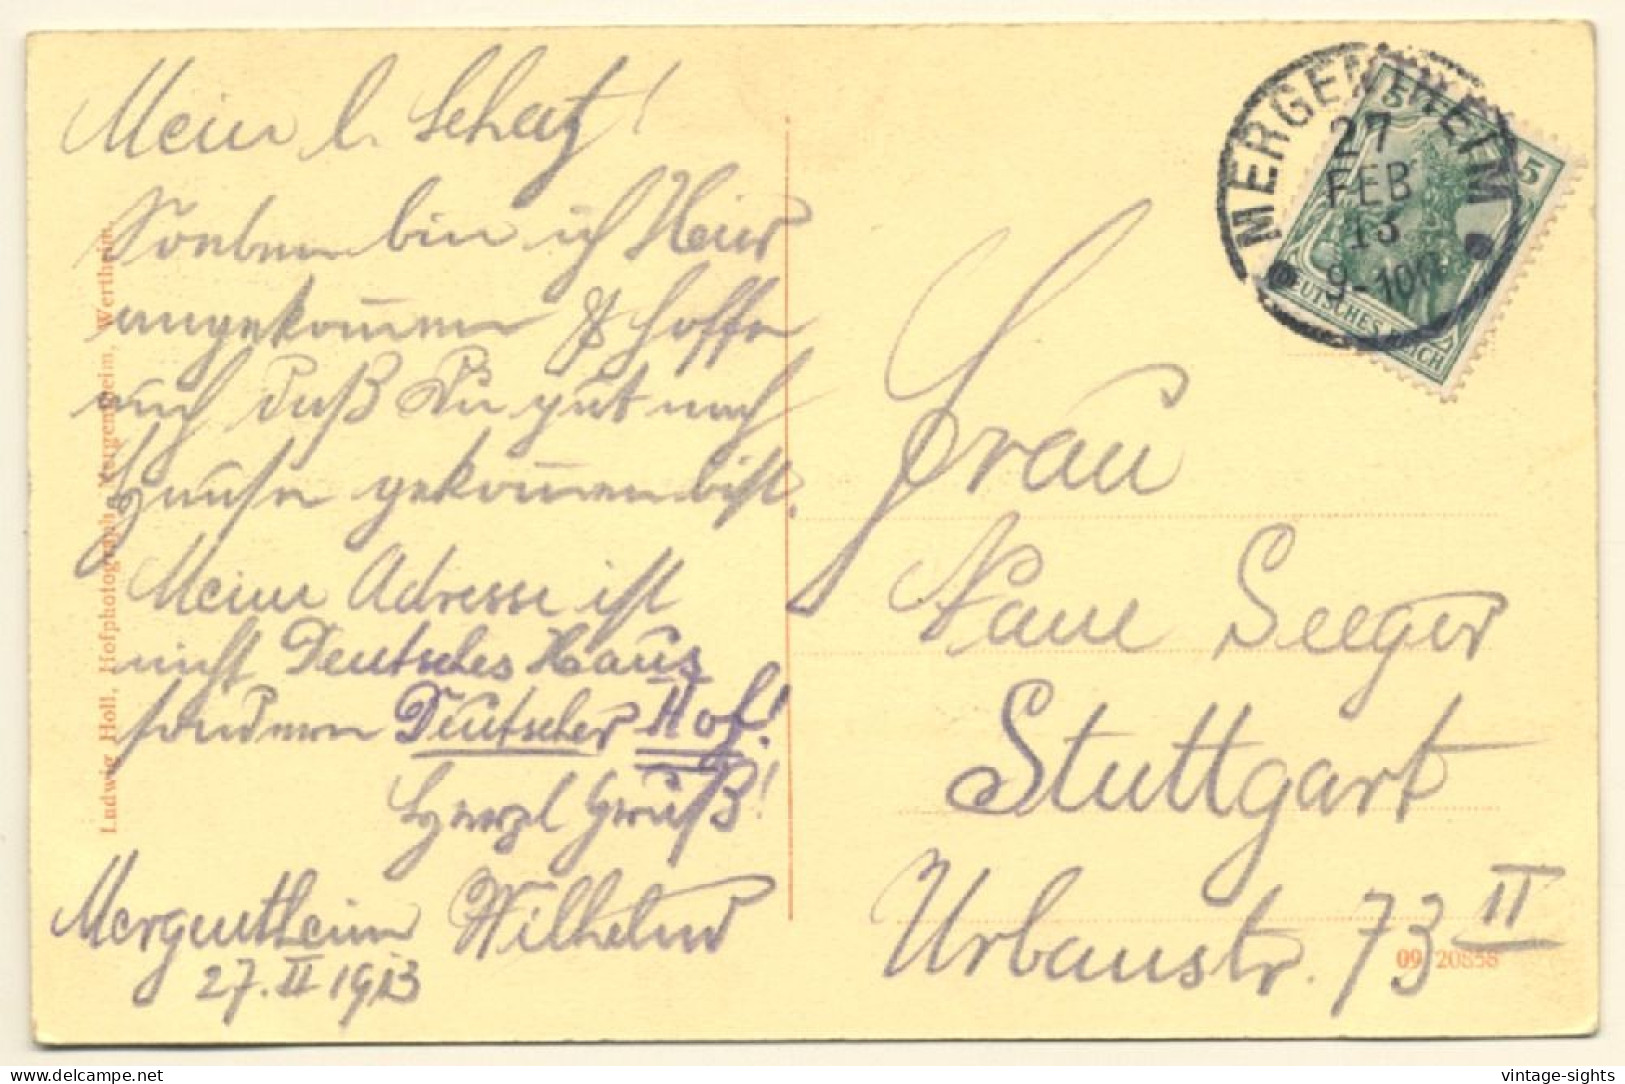 Mein l. Schatz!
Soeben bin ich Hier
angekommen & hoffe
auch daß Du gut nach
Hause gekommen bist.
Meine Adresse ist
nicht Deutsches Haus
sondern Deutscher Hof!
Herzl Gruß!
Wilhelm
Mergentheim
27. II 1913
Ludwig Holl, Hofphotograph, Mergentheim, Wertheim.
MERGENTHEIM
27
FEB
13
9-10
5
5
DEUTSCHES REICH
Frau
Seeger
Stuttgart
Urbanstr. 73 II
09 20858
vintage-sights